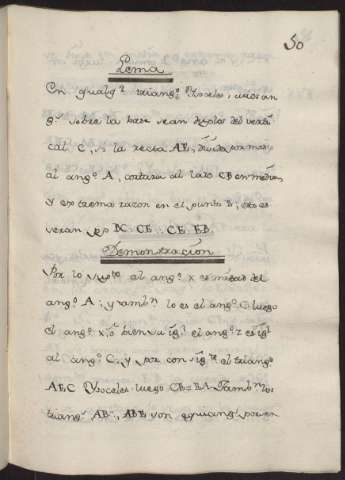 50
Lema
En qualq.r triang.o Ysosceles, cuios an
g.s sobre la base sean duplos del verti
cal C, si la recta AE, divide por medio
al ang.o A, cortara al lado CB en media
y extrema razon en el punto E; esto es
seran BC. CE : CE. EB.
Demonstracion
Por lo sup.to el ang.o x es mitad del
ang.o A; y tamb.n lo es el ang.o C: luego
el ang.o x, o bien su ig.l el ang.o z es ig.l
al ang.o C, y por consig.te el triang.o
AEC Ysosceles: luego CE=EA. Tamb.n los
triang.s ABC, ABE son equiang.s pues en